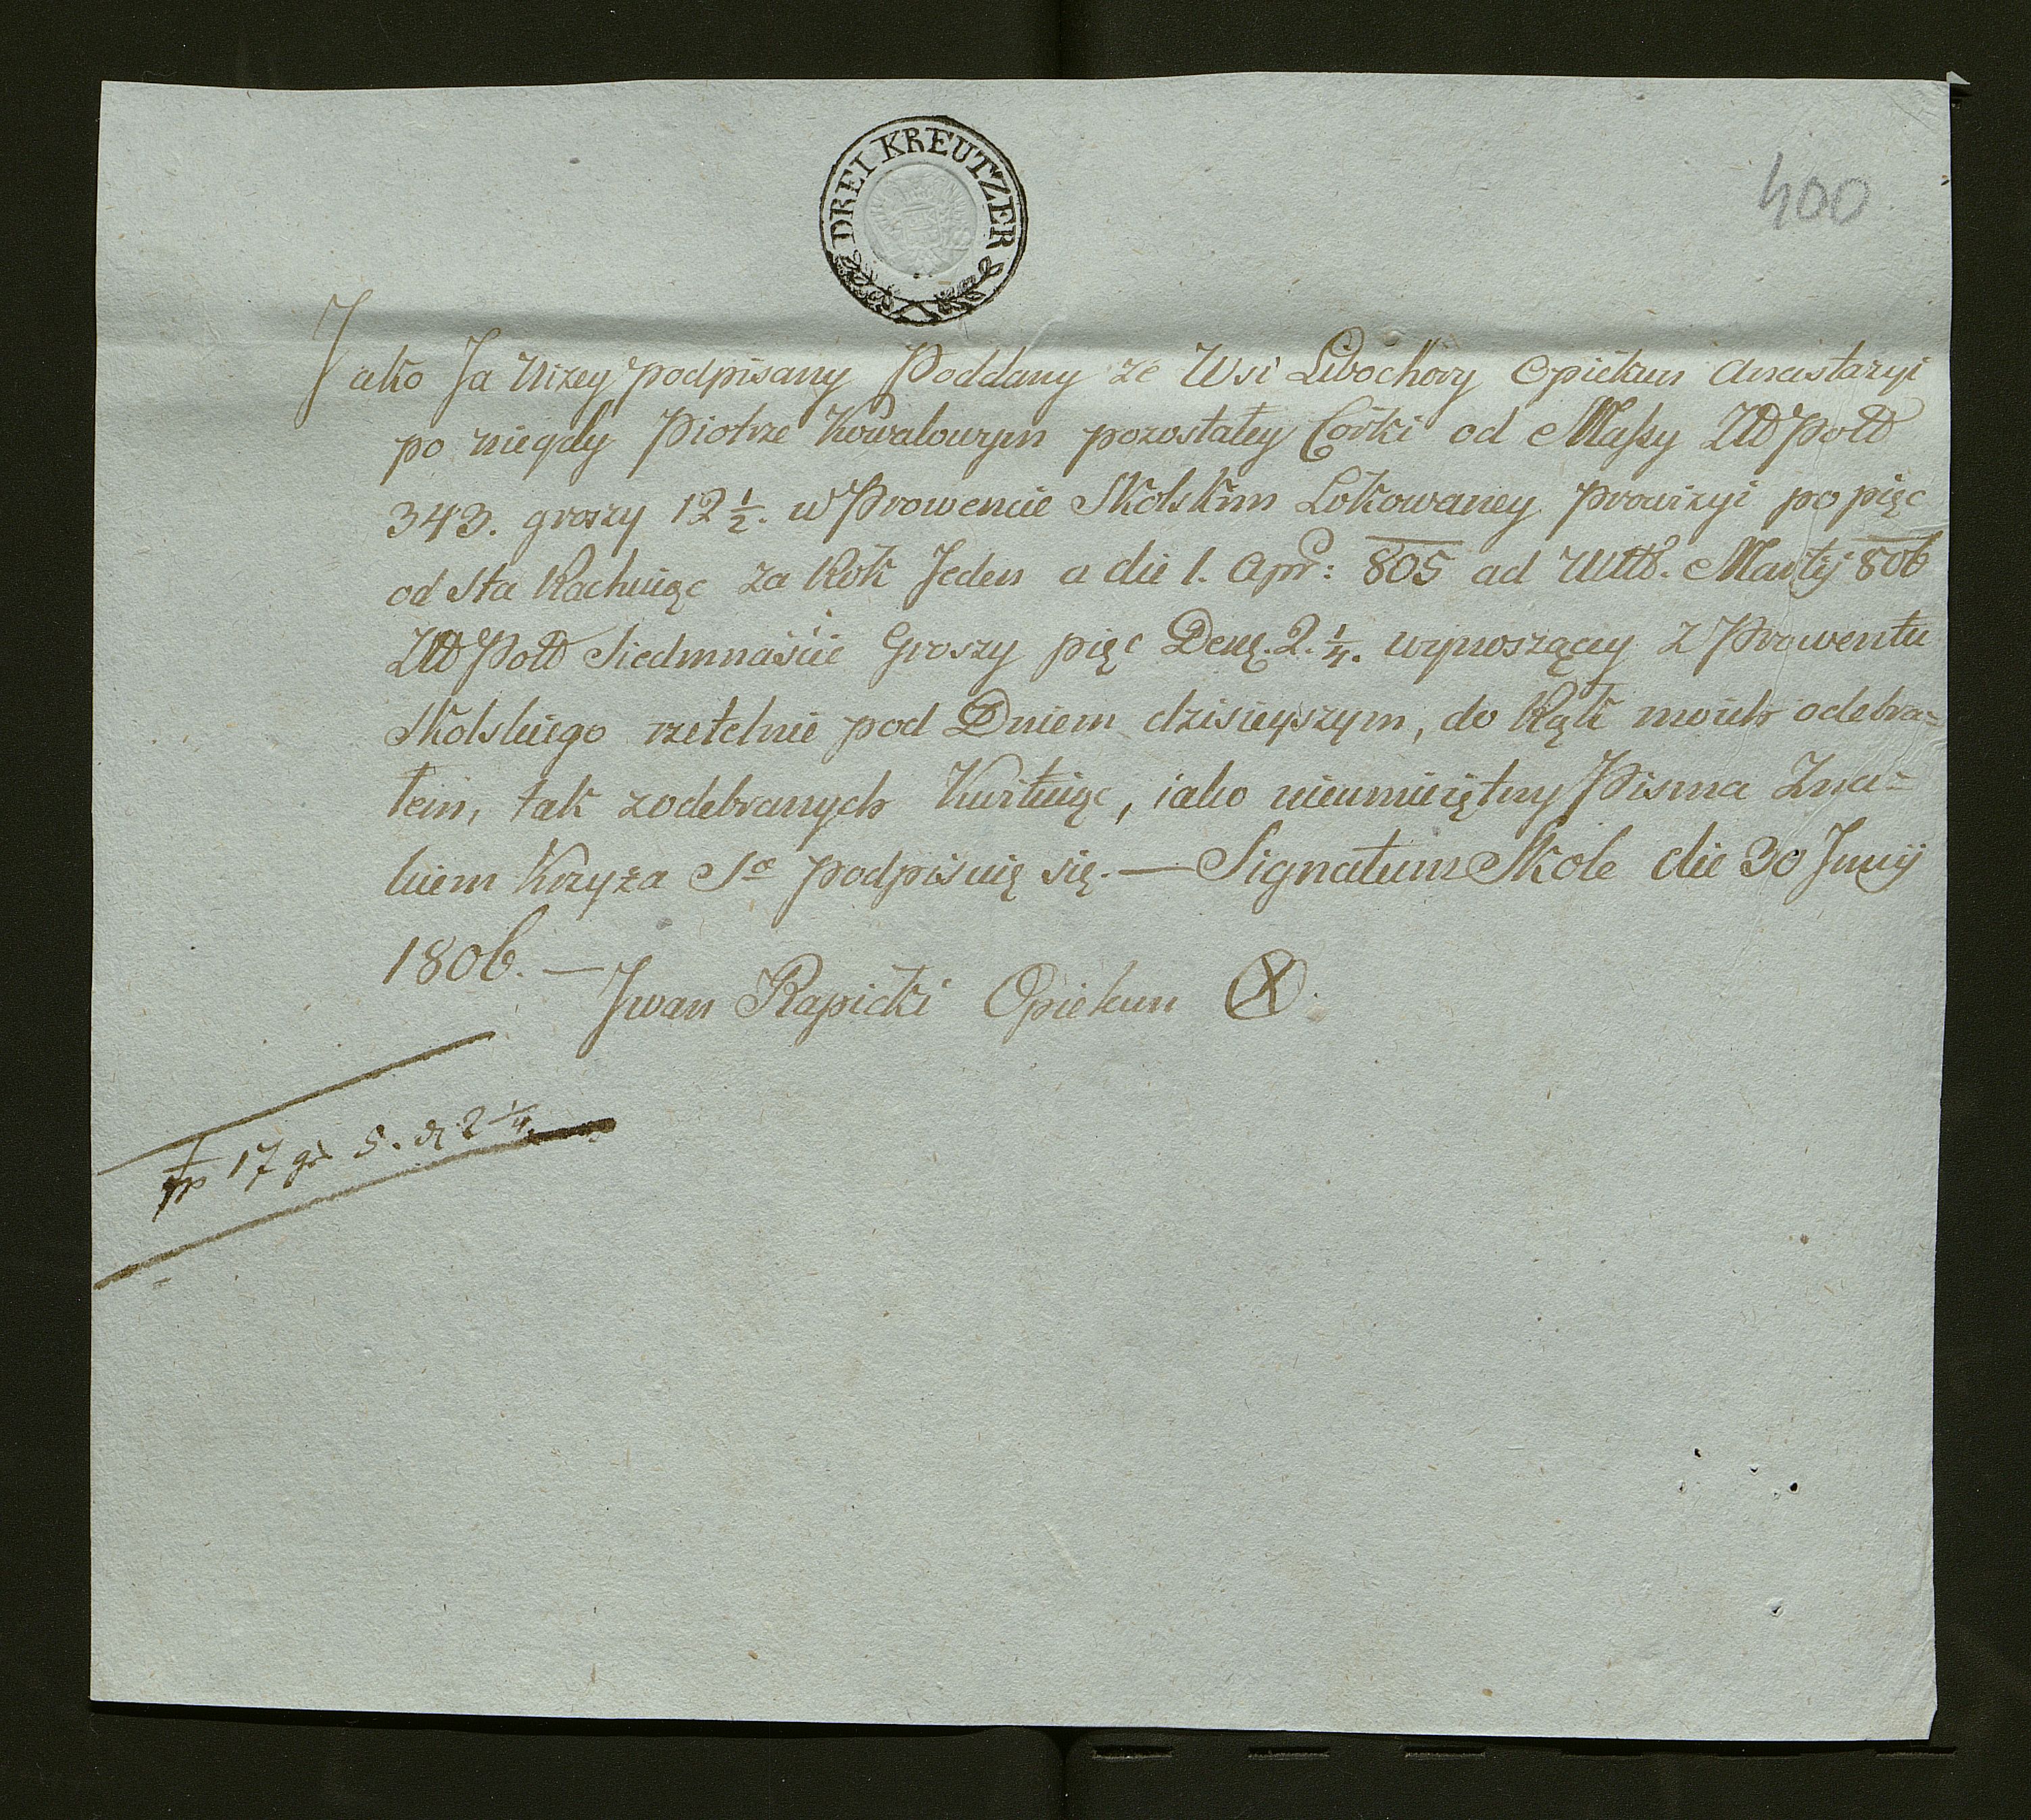 DREI KREUTZER
400
Jako Ja Niżey podpisany Poddany ze Wsi Libochory Opiekun Anastazyi
po niegdy Piotrze Kowalowym pozostałey Corki od Massy Złł Poll
343. groszy 12 1/2. w Prowencie Skolskim Lokowaney prowizyi po pięc
od Sta Rachuiąc za Rok Jeden a die 1. Apr: 805 ad Ult. Martij 806
Złł Poll Siedmnaście Groszy pięc Den. 2. 1/4. wynoszący z Prowentu
Skolskiego rzetelnie pod Dniem dzisieyszym, do Rąk moich odebra=
łem, tak z odebranych Kwituiąc, iako nieumieiętny Pisma Zna=
kiem Krzyża So podpisuię się. — Signatum Skole die 30 Junij
1806. —
Iwan Rapicki Opiekun X.
fp 17 gr 5. d 2 1/4.